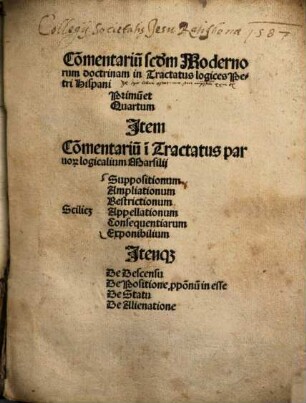 Collegij Societatis Jesu Ratisbonæ 1587
Cōmentariũ scďm Moderno
rum doctrinam in Tractatus logices Pe-
tri Hispani
Primũ et
Quartum
Item
Cōmentariũ ĩ Tractatus par
uorꝝ logicalium Marsilij
Suppositionum
Ampliationum
Restrictionum
Scilicꝫ Appellationum
Consequentiarum
Exponibilium
Itemqꝫ
De Descensu
De Positione ꝓpōnũ in esse
De Statu
De Alienatione